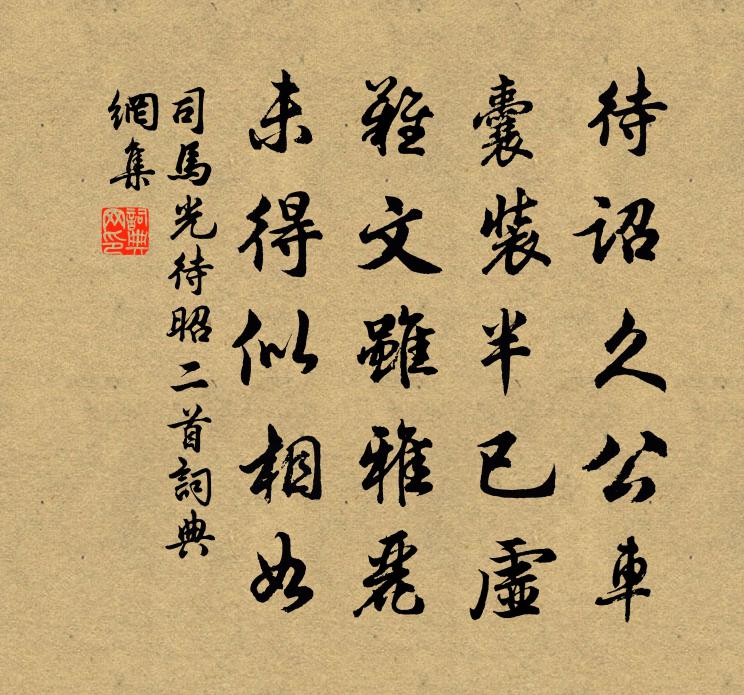 待詔久公車
囊裝半已虛
難文雖雅麗
未得似相如
司馬光待昭二首詞典
網集
詞典
网印